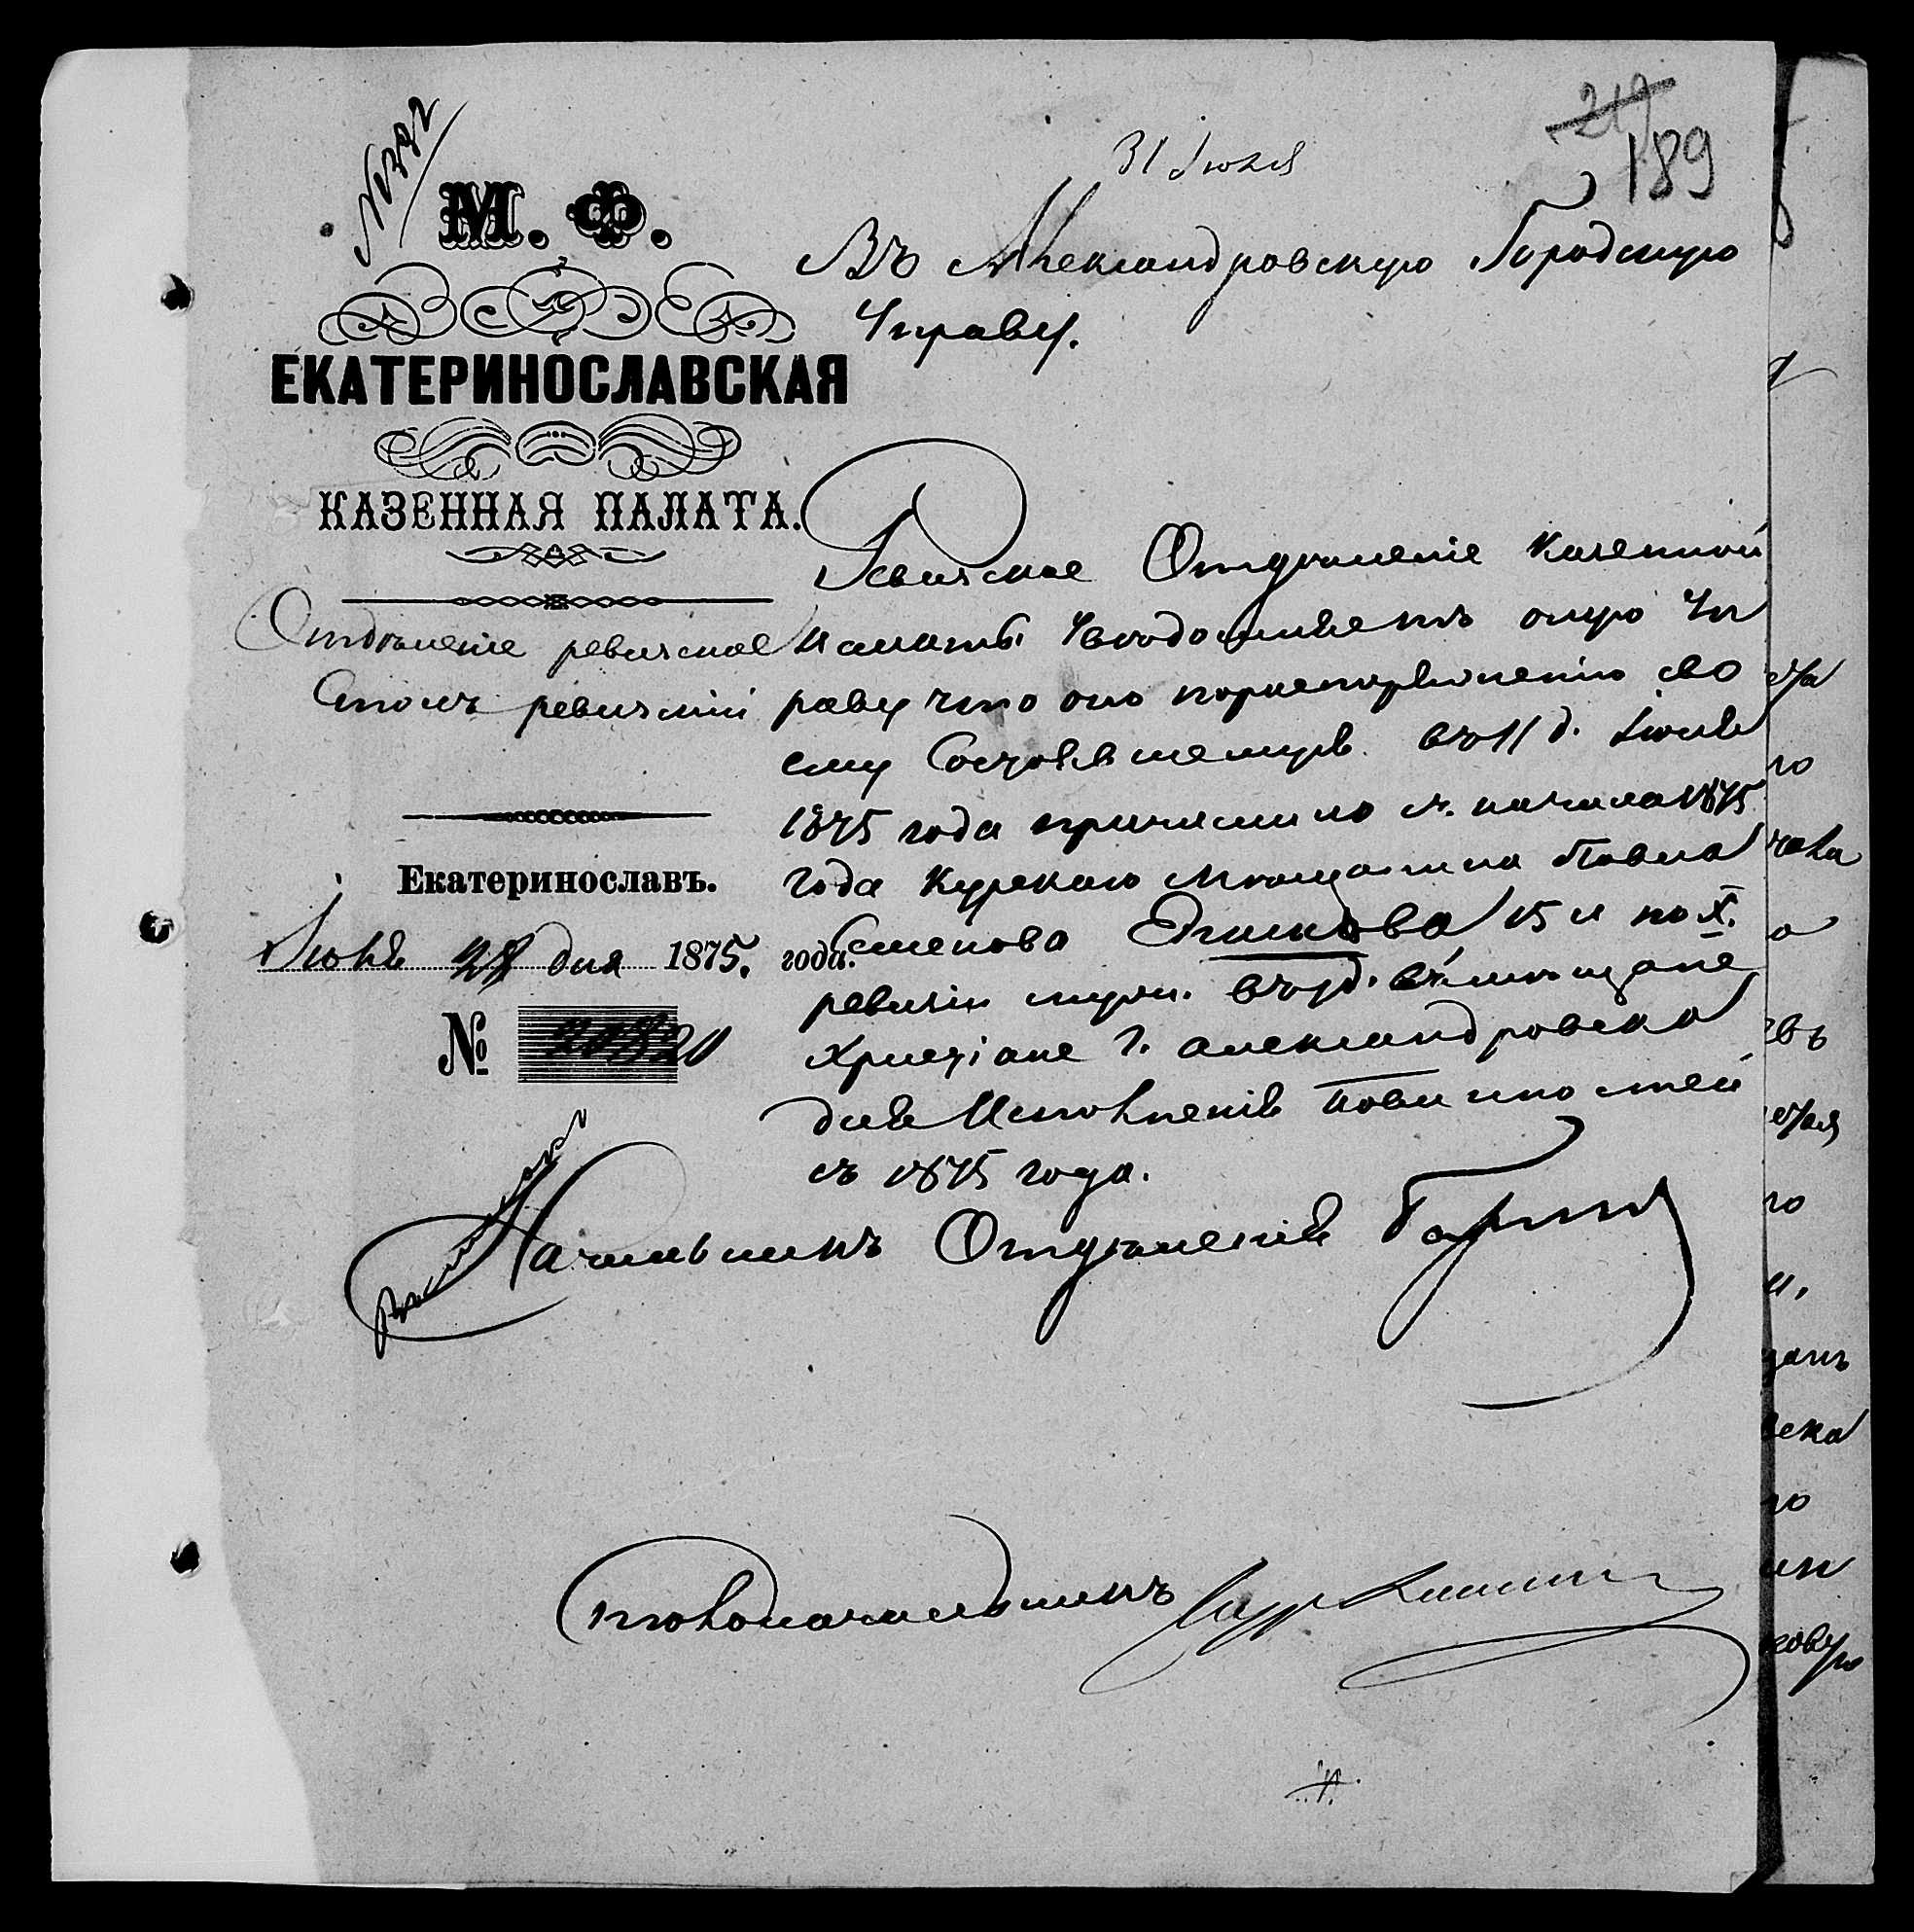 189
31 Іюля
М. Ф.
ЕКАТЕРИНОСЛАВСКАЯ
КАЗЕННАЯ ПАЛАТА.
Отдѣленіе ревизское
Столъ ревизскій
Екатеринославъ.
Іюля 28 дня 1875. года.
№ 20820
Въ Александровскую Городскую
Управу.
Ревизское Отдѣленіе Казенной
Палаты увѣдомляетъ оную Уп
раву что оно по
ему Состоявшемуся въ 11 д. Іюля
1875 года причислило съ начала 1875
года Курскаго мѣщанина Павла
Семенова 15 и по X.
ревизіи въ мѣщане
Христіане г. Александровска
для Исполненія повинностей
съ 1875 года.
Начальникъ Отдѣленія
Столоначальникъ